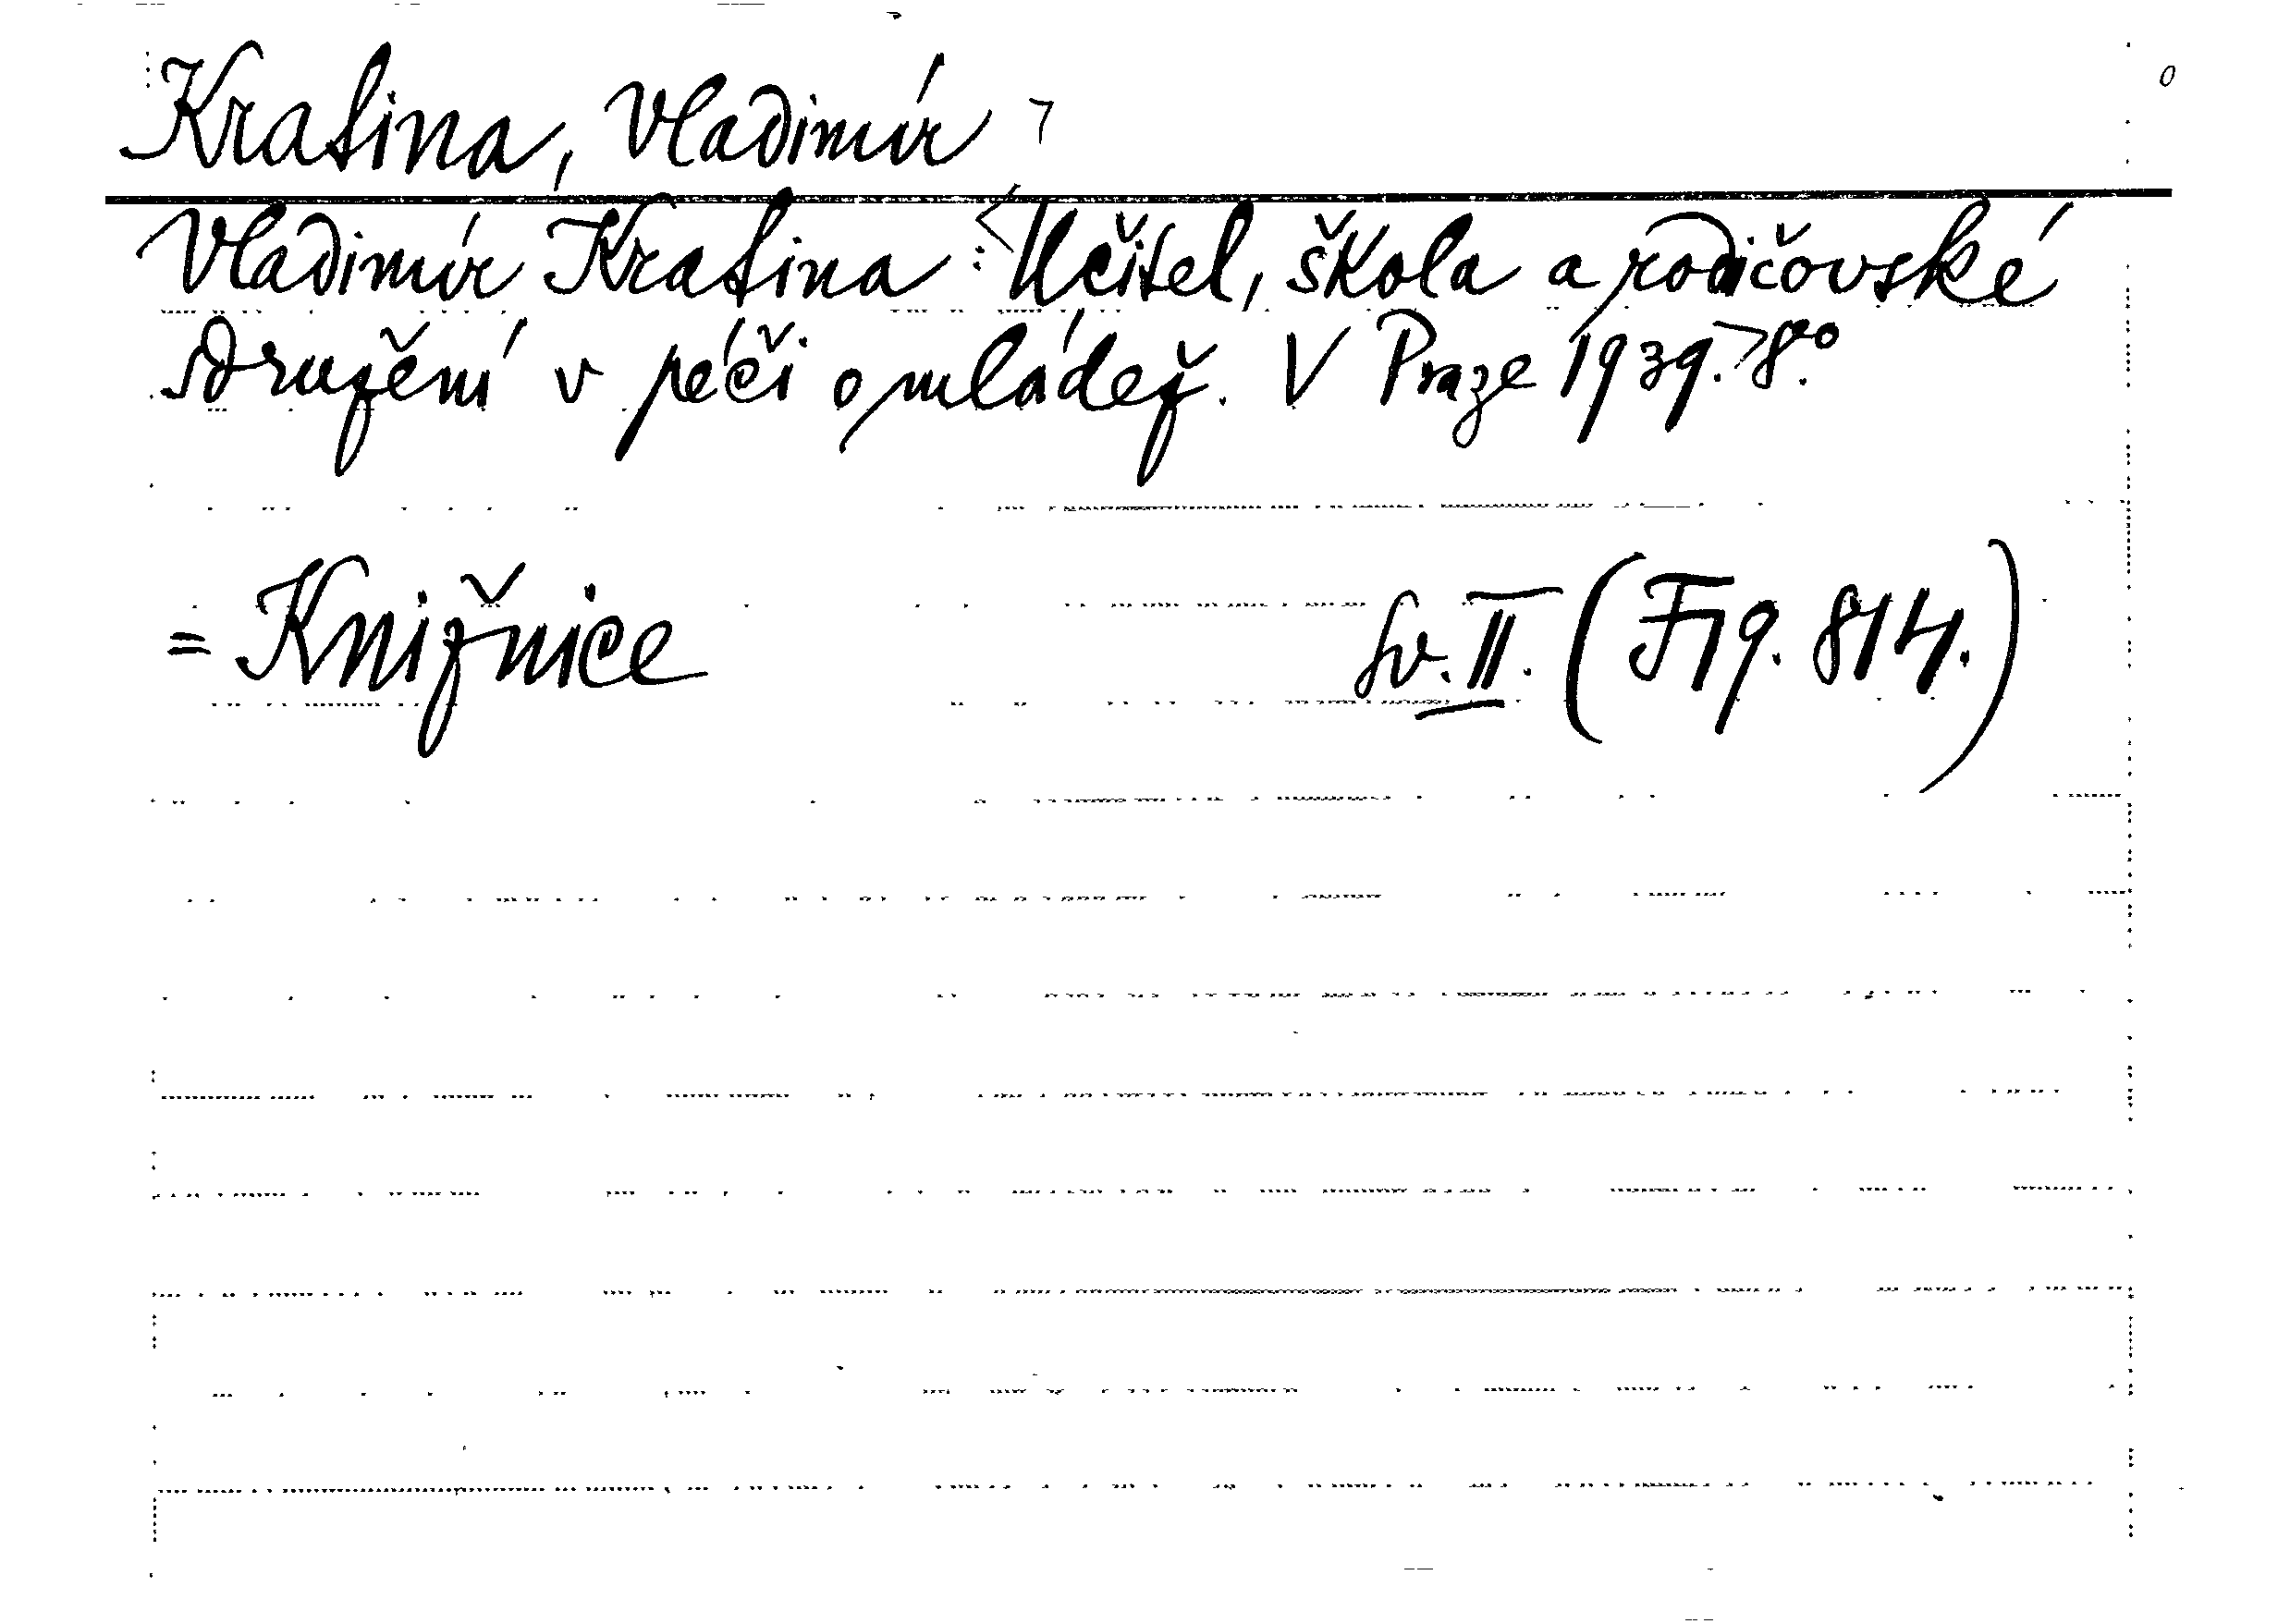 Kratina, Vladimír
Vladimír Kratina: Učitel, škola a rodičovské
sdružení v péči o mládež. V Praze 1939. 8º.
= Knižnice sv. II. (Fig. 814.)